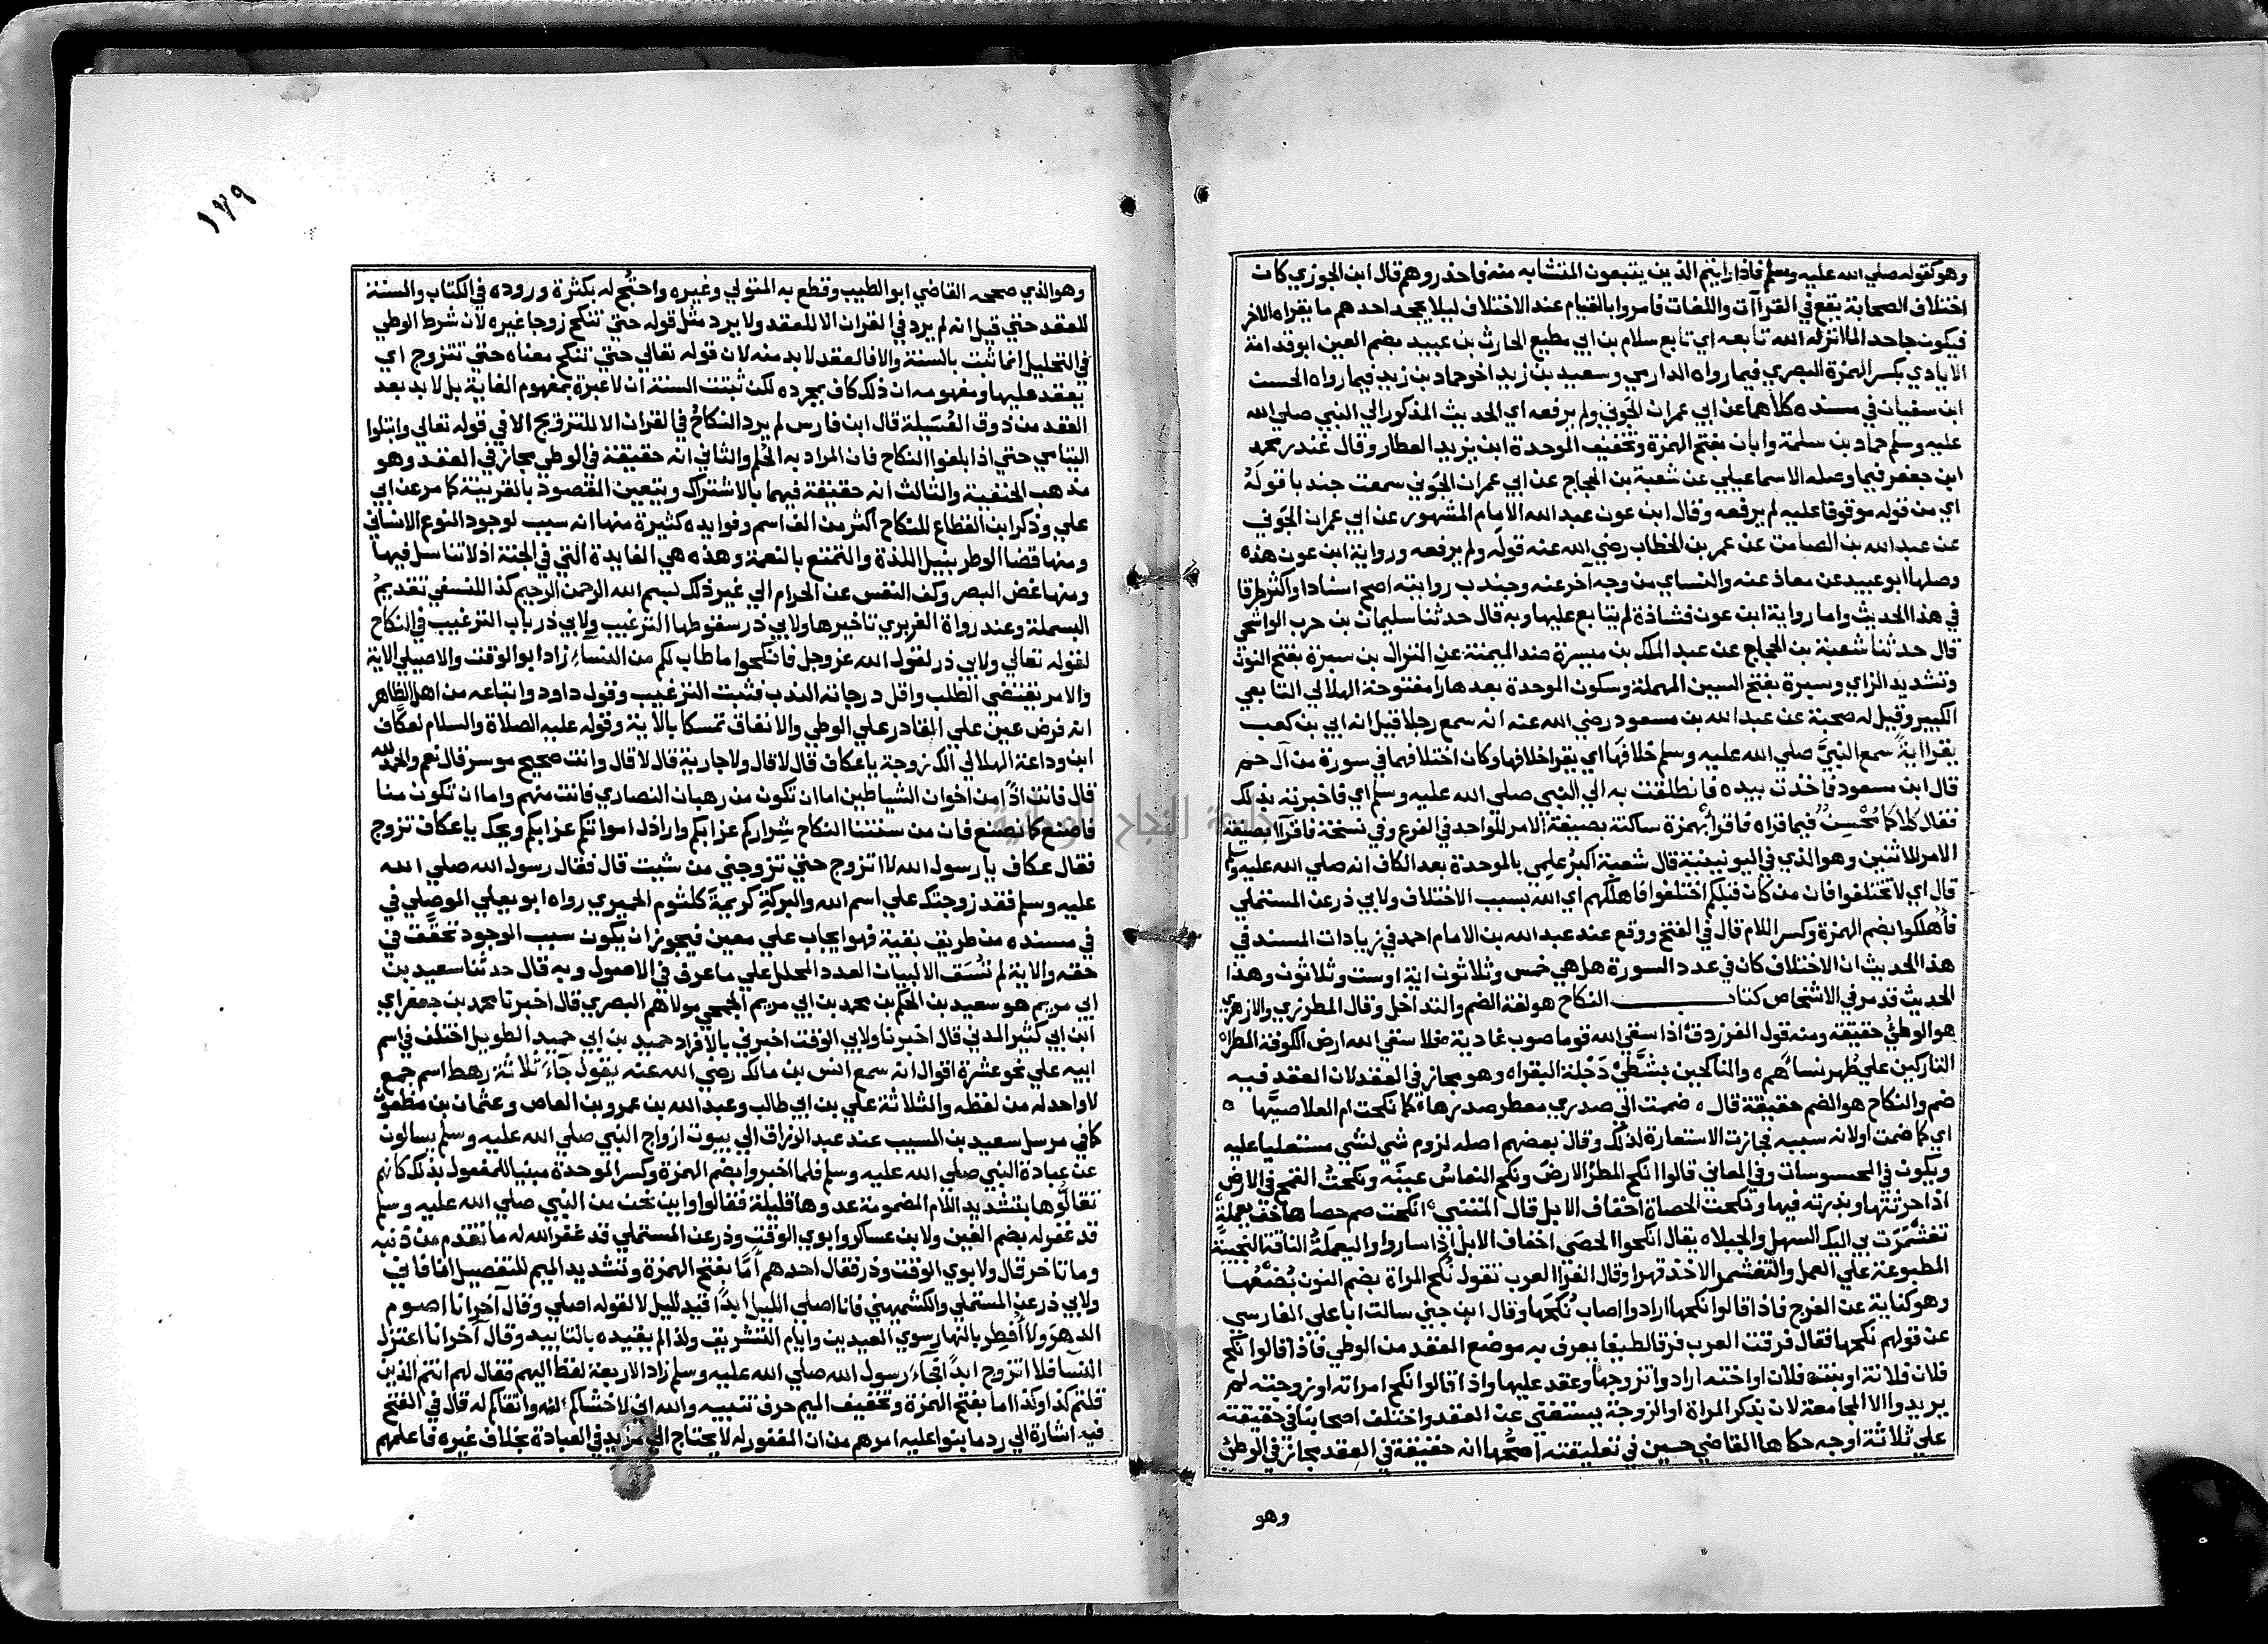 وهو كقوله صلي الله عليه وسلم فاذا رايتم الذين يتبعون المتشابه منه فاحذروهم قال ابن الجوزي كان
اختلاف الصحابة يقع في القراآت واللغات فامروا بالقيام عند الاختلاف ليلا يجحد احدهم ما يقراه الاخر
فيكون جاحدا لما انزله الله تابعه اي تابع سلام بن ابي مطيع الحارث بن عبيد بضم العين ابو قدامة
الايادي بكسر الهمزة البصري فيما رواه الدارمي وسعيد بن زيد اخو حماد بن زيد فيما رواه الحسن
ابن سفيان في مسنده كلاهما عن ابي عمران الجوني ولم يرفعه اي الحديث المذكور الي النبي صلي الله
عليه وسلم حماد بن سلمة وابان بفتح الهمزة وتخفيف الموحدة ابن يزيد العطار وقال غندر محمد
ابن جعفر فيما وصله الاسماعيلي عن شعبة بن الحجاج عن ابي عمران الجوني سمعت جندبا قوله
اي من قوله موقوفا عليه لم يرفعه وقال ابن عون عبد الله الامام المشهور عن ابي عمران الجوني
عن عبد الله بن الصامت عن عمر بن الخطاب رضي الله عنه قوله ولم يرفعه ورواية ابن عون هذه
وصلها ابو عبيد عن معاذ عنه والنساي من وجه آخر عنه وجندب روايته اصح اسنادا واكثر طرقا
في هذا الحديث واما رواية ابن عون فشاذة لم يتابع عليها وبه قال حدثنا سليمان بن حرب الواشحي
قال حدثنا شعبة بن الحجاج عن عبد الملك بن ميسرة ضد الميمنة عن النزال بن سبرة بفتح النون
وتشديد الزاي وسبرة بفتح السين المهملة وسكون الموحدة بعدها را مفتوحة الهلالي التابعي
الكبير وقيل له صحبة عن عبد الله بن مسعود رضي الله عنه انه سمع رجلا قيل انه ابي بن كعب
يقرا اية سمع النبي صلي الله عليه وسلم خلافها اي يقرا خلافها وكان اختلافهما في سورة من آل حم
قال ابن مسعود فاخذت بيده فانطلقت به الي النبي صلي الله عليه وسلم اي فاخبرته بذلك
فقال كلاكما محسن فيما قراه فاقرا بهمزة ساكنة بصيغة الامر للواحد في الفرع وفي نسخة فاقرآ بصيغة
الامر للاثنين وهو الذي في اليونينية قال شعبة اكبر علمي بالموحدة بعد الكاف انه صلي الله عليه وسلم
قال اي لا تختلفوا فان من كان قبلكم اختلفوا فاهلكهم اي الله بسبب الاختلاف ولابي ذر عن المستملي
فأهلكوا بضم الهمزة وكسر اللام قال في الفتح ووقع عند عبد الله بن الامام احمد في زيادات المسند في
هذا الحديث ان الاختلاف كان في عدد السورة هل هي خمس وثلاثون اية او ست وثلاثون وهذا
الحديث قد مر في الاشخاص كتاب النكاح هو لغة الضم والتداخل وقال المطرزي والازهري
هو الوطئ حقيقة ومنه قول الفرزدق اذا سقي الله قوما صوب غادية فلا سقي الله ارض الكوفة المطرا
التاركين علي طهر نساهم والناكحين بشطي دجلة البقراه وهو مجاز في العقد لان العقد فيه
ضم والنكاح هو الضم حقيقة قال ضممت الي صدري معطر صدرها كما نكحت ام العلا صبيها
اي كما ضمت اولانه سببه فجازت الاستعارة لذلك وقال بعضهم اصله لزوم شي لشي مستعليا عليه
ويكون في المحسوسات وفي المعاني قالوا انكح المطر الارض ونكح النعاس عينه ونكحت القمح في الارض
اذا حرثتها وبذرته فيها ونكحت الحصاة اخفاف الابل قال المتنبي انكحت صم حصاها خف يعملة
تغشمرت بي اليك السهل والجبلاه يقال انكحوا الحصي اخفاف الابل اذا ساروا واليعملة الناقة النجيبة
المطبوعة علي العمل والتغشمر الاخذ قهرا وقال الفرا العرب تقول نكح المراة بضم النون بضعها
وهو كناية عن الفرج فاذا قالوا نكحها ارادوا اصاب نكحها وقال ابن جني سالت ابا علي الفارسي
عن قولهم نكحها فقال فرقت العرب فرقا لطيفا يعرف به موضع العقد من الوطي فاذا قالوا نكح
فلان فلانة او بنت فلان او اخته ارادوا تزوجها وعقد عليها واذا قالوا نكح امراته او زوجته لم
يريدوا الا المجامعة لان بذكر المراة او الزوجة يستغني عن العقد واختلف اصحابنا في حقيقته
علي ثلاثة اوجه حكاها القاضي حسين في تعليقته اصحها انه حقيقة في العقد مجاز في الوطئ
وهو
١٧٩
وهو الذي صححه القاضي ابو الطيب وقطع به المتولي وغيره واحتج له بكثرة وروده في الكتاب والسنة
للعقد حتي قيل انه لم يرد في القران الا للعقد ولا يرد مثل قوله حتي تنكح زوجا غيره لان شرط الوطي
في التحليل انما ثبت بالسنة والا فالعقد لا بد منه لان قوله تعالي حتي تنكح معناه حتي تتزوج اي
يعقد عليها ومفهومه ان ذلك كاف بمجرده لكن ثبتت السنة ان لا عبرة بمفهوم الغاية بل لا بد بعد
العقد من ذوق العسيلة قال ابن فارس لم يرد النكاح في القران الا للتزويج الا في قوله تعالي وابتلوا
اليتامي حتي اذا بلغوا النكاح فان المراد به الحلم والثاني انه حقيقة في الوطي مجاز في العقد وهو
مذهب الحنفية والثالث انه حقيقة فيهما بالاشتراك ويتعين المقصود بالقرينة كما مر عن ابي
علي وذكر ابن القطاع للنكاح اكثر من الف اسم وفوايده كثيرة منها انه سبب لوجود النوع الانساني
ومنها قضا الوطر بنيل اللذة والتمتع بالنعمة وهذه هي الفايدة التي في الجنة اذ لا تناسل فيها
ومنها غض البصر وكف النفس عن الحرام الي غير ذلك بسم الله الرحمن الرحيم كذا للنسفي تقديم
البسملة وعند رواة الفربري تاخيرها ولابي ذر سقوطها الترغيب ولابي ذر باب الترغيب في النكاح
لقوله تعالي ولابي ذر لقول الله عز وجل فانكحوا ما طاب لكم من النساء زاد ابو الوقت والاصيلي الاية
والامر يقتضي الطلب واقل درجاته الندب فثبت الترغيب وقول داود واتباعه من اهل الظاهر
انه فرض عين علي القادر علي الوطي والانفاق تمسكا بالاية وقوله عليه الصلاة والسلام لعكاف
ابن وداعة الهلالي الك زوجة يا عكاف قال لا قال ولا جارية قال لا قال وانت صحيح موسر قال نعم والحمد لله
قال فانت اذا من اخوان الشياطين اما ان تكون من رهبان النصاري فانت منهم واما ان تكون منا
فاصنع كما نصنع فان من سنتنا النكاح شراركم عزابكم واراذل امواتكم عزابكم ويحك يا عكاف تزوج
فقال عكاف يا رسول الله لا اتزوج حتي تزوجني من شيت قال فقال رسول الله صلي الله
عليه وسلم فقد زوجتك علي اسم الله والبركة كريمة كلثوم الحميري رواه ابو يعلي الموصلي في
في مسنده من طريق بقية فهو ايجاب علي معين فيجوز ان يكون سبب الوجود تحقق في
حقه والاية لم تسق الا لبيان العدد المحلل علي ما عرف في الاصول وبه قال حدثنا سعيد بن
ابي مريم هو سعيد بن الحكم بن محمد بن ابي مريم الجمحي مولاهم البصري قال اخبرنا محمد بن جعفر اي
ابن ابي كثير المدني قال اخبرنا ولابي الوقت اخبرني بالافراد حميد بن ابي حميد الطويل اختلف في اسم
ابيه علي نحو عشرة اقوال انه سمع انس بن مالك رضي الله عنه يقول جاء ثلاثة رهط اسم جمع
لا واحد له من لفظه والثلاثة علي بن ابي طالب وعبد الله بن عمرو بن العاص وعثمان بن مظعون
كما في مرسل سعيد بن المسيب عند عبد الرزاق الي بيوت ازواج النبي صلي الله عليه وسلم يسالون
عن عبادة النبي صلي الله عليه وسلم فلما اخبروا بضم الهمزة وكسر الموحدة مبنيا للمفعول بذلك كانهم
تقالوها بتشديد اللام المضمومة عدوها قليلة فقالوا واين نحن من النبي صلي الله عليه وسلم
قد غفر له بضم الغين ولابن عساكر وابوي الوقت وذر عن المستملي قد غفر الله له ما تقدم من ذنبه
وما تاخر قال ولابوي الوقت وذر فقال احدهم أما بفتح الهمزة وتشديد الميم للتفصيل انا فاني
ولابي ذر عن المستملي والكشميهني فانا اصلي الليل ابدا قيد لليل لا لقوله اصلي وقال آخر انا اصوم
الدهر ولا أفطر بالنهار سوي العيدين وايام التشريق ولذا لم يقيده بالتابيد وقال آخر انا اعتزل
النسا فلا اتزوج ابدا فجاء رسول الله صلي الله عليه وسلم زاد الاربعة لفظ اليهم فقال لهم انتم الذين
قلتم كذا وكذا اما بفتح الهمزة وتخفيف الميم حرف تنبيه والله اني لاخشاكم لله واتقاكم له قال في الفتح
فيه اشارة الي رد ما بنوا عليه امرهم من ان المغفور له لا يحتاج الي مزيد في العبادة بخلاف غيره فاعلمهم